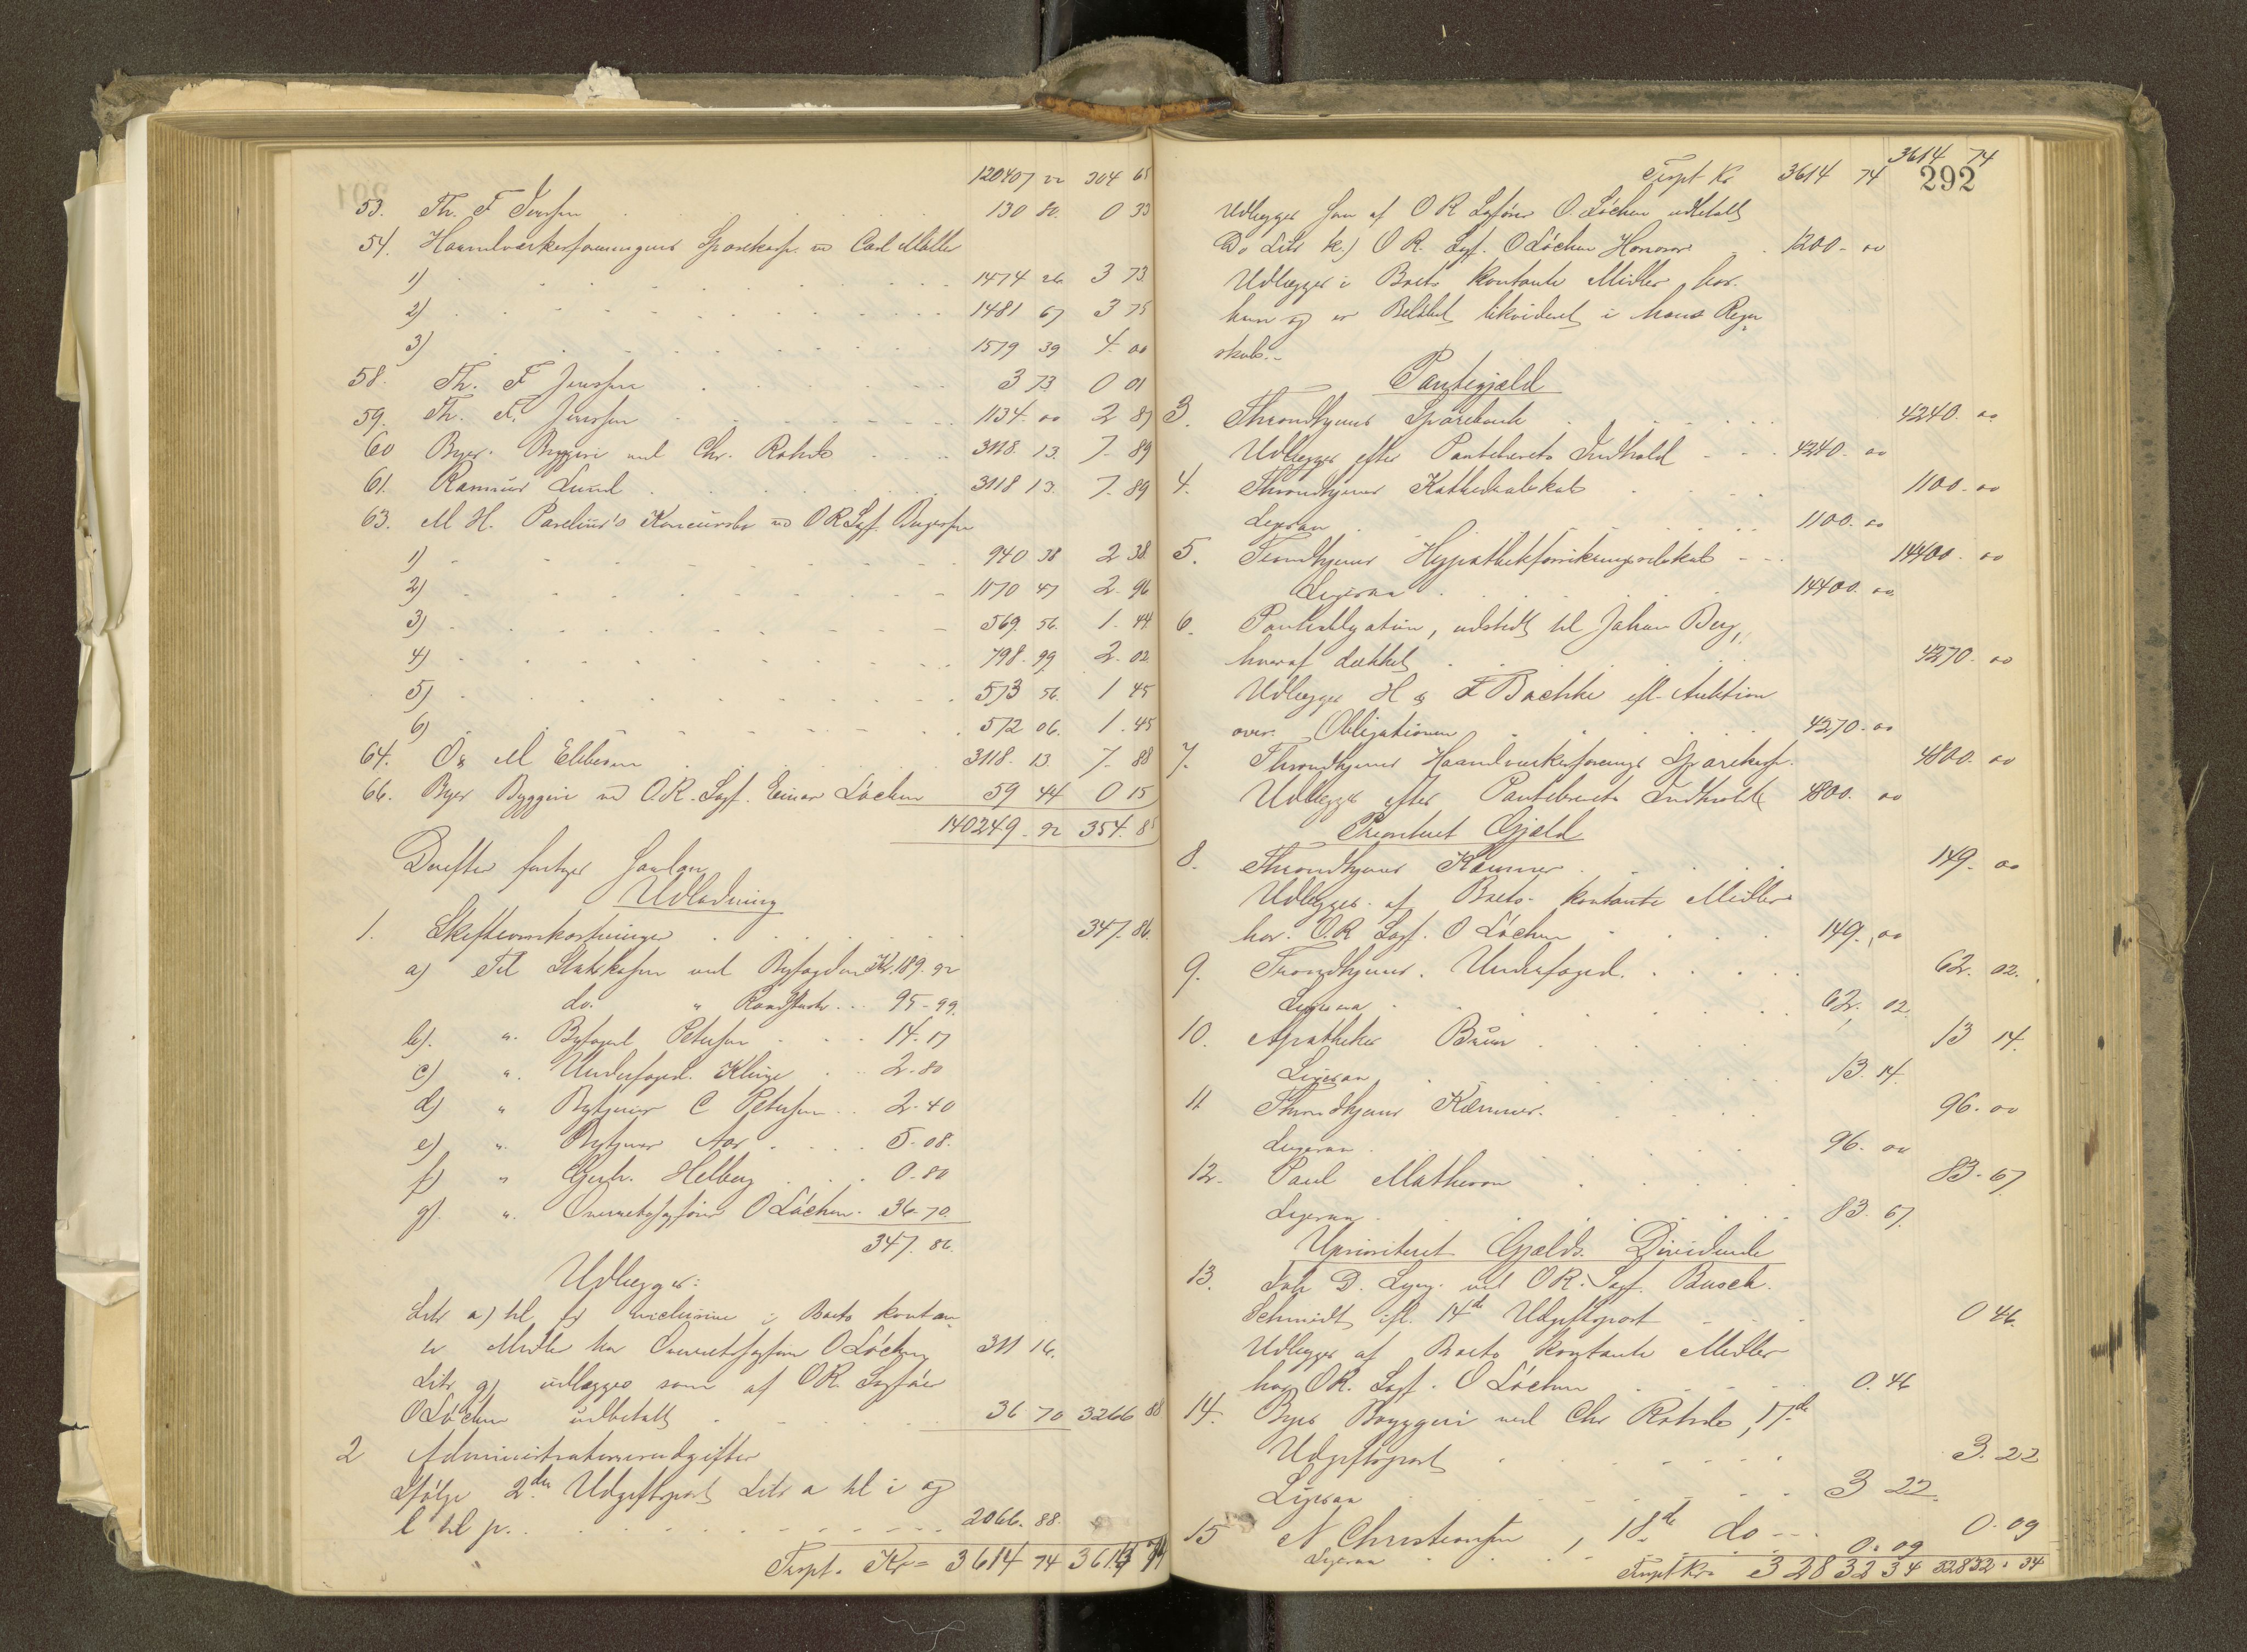 120407 22 304 65
53. Th. F Jenssen 130 80. 0 33
54. Haandværkerforeningens Sparekasse v Carl Møller
1) 1474 26 3 73
2) 1481 67 3 75
3) 1579 39 4. 00
58. Th. F Jenssen 3 73 0 01
59. Th. F. Jenssen 1134. 00 2 87
60 Byes Byggeri ved Chr. Rohde 3118. 13. 7. 89
61. Rasmus Lund 3118 13. 7. 89
63. M H. Parelius's Koncursbo v O R Sagf. Birgersen
1) 940 38 2 38
2) 1170 47 2. 96
3) 569. 56. 1. 44
4) 798. 99 2. 02
5) 573 56. 1 45
6) 572 06. 1. 45
64. O & M Ebbesen 3118. 13. 7. 88
66. Byes Byggeri v O.R. Sagf. Einar Löchen 59 44 0 15
140249. 92 354. 85
Derefter foretoges saadan
Udlodning
1. Skifteomkostninger 347. 86.
a) Til Statskassen ved Byfogden Kr. 189. 92
do. " 95-99.
b). " Byfoged Petersen 14. 17
c) " Underfoged Klinge 2. 80
d) " Bytjener C Petersen 2. 40
e) " Bytjener Aas 5. 08.
f) " Helberg 0. 80
g). " Overretssagfører O Löchen. 36. 70.
347. 86.
Udlægges:
Litr a) til f) inclusive i Boets kontan-
te Midler hos Overretssagfører O Löchen 311 16.
Litr g) udlægges som af OR. Sagfører
O Löchen udbetalt 36 70 3266 88
2 Administrationsudgifter
Ifølge 2den Udgiftspost Litr a til i og
l til p. 2066. 88.
Trspt. Kr= 3614 74 3614 74
3614 74
292
Trspt Kr 3614 74
Udlægges som af O R Sagfører O. Löchen udbetalt
Do Litr k.) O R. Sagf. O Löchen Honorar 1200. 00
Udlægges i Boets kontante Midler hos
ham og er Beløbet likvideret i hans Regn-
skab.
Pantegjæld
3. Throndhjems Sparebank 4240. 00
Udlægges efter Pantebrevets Indhold 4240. 00
4. Throndhjems Kathedralskole 1100. 00
Ligesaa 1100. 00
5. Trondhjems Hypothekforsikringsselskab 14400. 00
Ligesaa 14400. 00
6. Panteobligation, udstedt til Johan Berg,
hvoraf dækket 4270. 00
Udlægges H & F Bachke efl. Auktion
over Obligationen 4270. 00
7. Throndhjems Haandværkerforenings Sparekasse. 4800. 00
Udlægges efter Pantebrevets Indhold 4800. 00
Prioriteret Gjæld
8. Throndhjems Kæmner 149. 00
Udlægges af Boets kontante Midler
hos O.R Sagf. O Löchen 149. 00
9. Trondhjems Underfoged. 62. 02.
Ligesaa 62. 02
10. Apotheker Bruun 13 14.
Ligesaa 13. 14.
11 Throndhjems Kæmner. 96. 00
Ligesaa 96. 00
12. Paul Matheson 83. 67
Ligesaa 83. 67.
Uprioriteret Gjælds Dividende
13. Joh D. Lyng ved O R. Sagf. Busch.
Schmidt ifl. 14de Udgiftspost 0 46.
Udlægges af Boets kontante Midler
hos O R. Sagf. O Löchen 0. 46
14. Byes Byggeri ved Chr Rohde, 17de
Udgiftspost 3. 22
Ligesaa 3 22.
15 N Christiansen, 18de do 0. 09
Ligesaa 0. 09
Trspt Kr. 32832 34 32832. 34